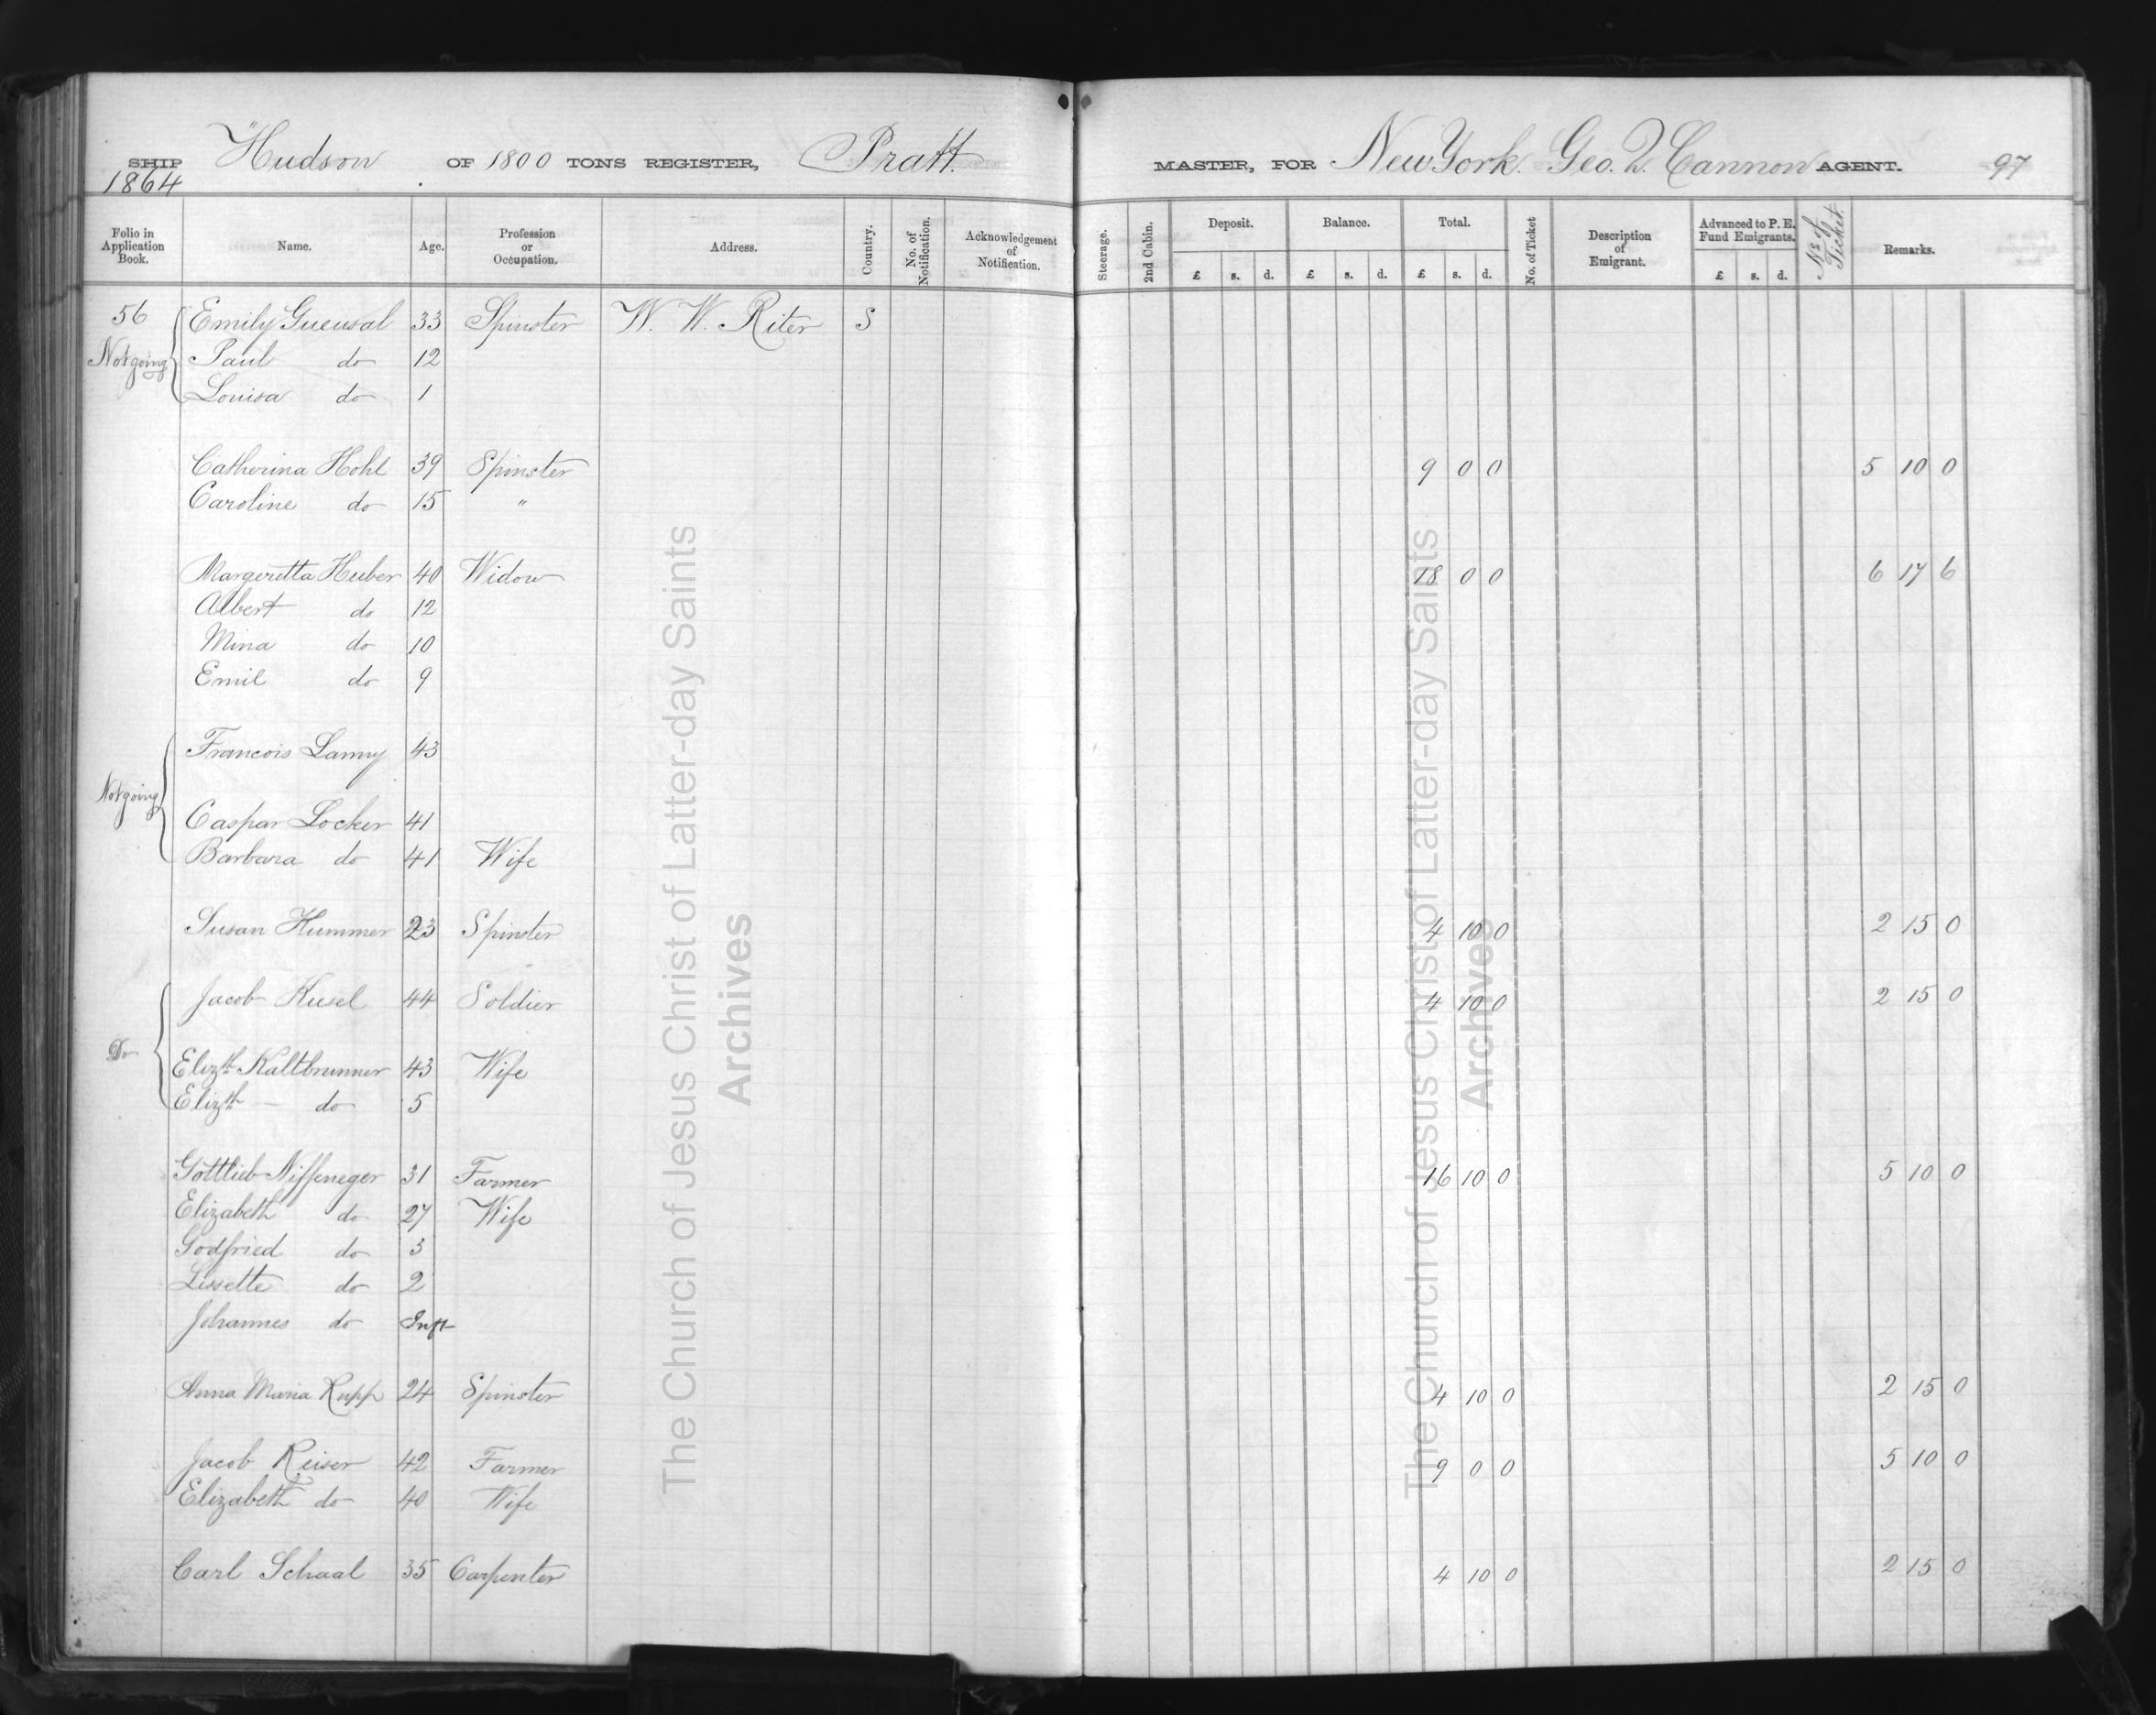 SHIP "Hudson OF 1800 TONS REGISTER, Pratt. MASTER, FOR New York. Geo. Q. Cannon AGENT. 97
1864
Folio in Application Book. Name. Age. Profession or Occupation. Address. Country. No. of Notification. Acknowledgement of Notification. Steerage. 2nd Cabin. Deposit. £ s. d. Balance. £ s. d. Total. £ s. d. No. of Ticket Description of Emigrant. Advanced to P. E. Fund Emigrants. £ s. d. No. of Ticket. Remarks.
56 Emily Gueusal 33 Spinster W. W. Riter S
Not going Paul do 12
Louisa do 1
Catherina Hohl 39 Spinster 9 0 0 5 10 0
Caroline do 15 "
Margeretta Huber 40 Widow 18 0 0 6 17 6
Albert do 12
Mina do 10
Emil do 9
Francois Lamy 43
Not going
Caspar Locher 41
Barbara do 41 Wife
Susan Hummer 23 Spinster 4 10 0 2 15 0
Jacob Kusel 44 Soldier 4 10 0 2 15 0
Do
Elizth Kaltbrunner 43 Wife
Elizth do 5
Gottlieb Niffeneger 31 Farmer 16 10 0 5 10 0
Elizabeth do 27 Wife
Godfried do 3
Lissette do 2
Johannes do Inft
Anna Maria Rupp 24 Spinster 4 10 0 2 15 0
Jacob Reiser 42 Farmer 9 0 0 5 10 0
Elizabeth do 40 Wife
Carl Schaal 35 Carpenter 4 10 0 2 15 0
The Church of Jesus Christ of Latter-day Saints
Archives
The Church of Jesus Christ of Latter-day Saints
Archives